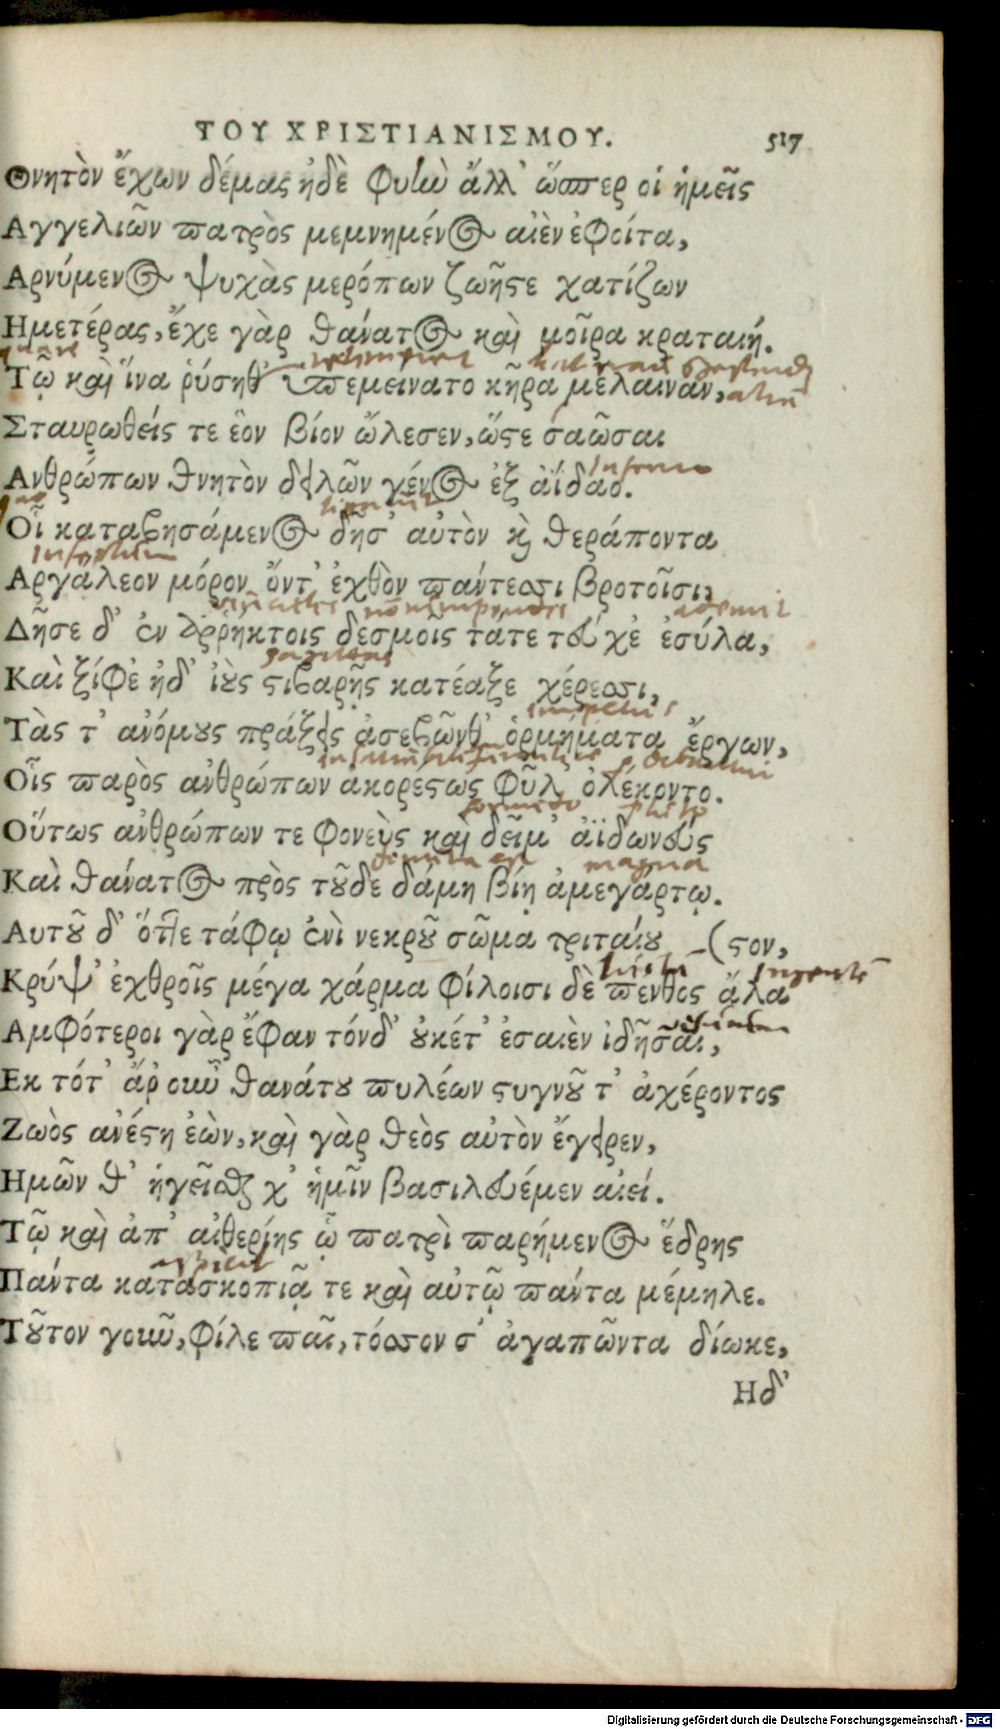 ΤΟΥ ΧΡΙΣΤΙΑΝΙΣΜΟΥ. 517
Θνητὸν ἔχων δέμας ἠδὲ φυὴν ἄλλ' ὥσπερ οἱ ἡμεῖς
Αγγελιῶν πατρὸς μεμνημένος αἰὲν ἐφοίτα,
Αρνύμενος ψυχὰς μερόπων ζωῆστε χατίζων
Ημετέρας, ἔχε γὰρ θάνατος καὶ μοῖρα κραταιή.
Τῷ καὶ ἵνα ῥύσηθ' ὑπεμείνατο κῆρα μέλαιναν,
Σταυρωθείς τε ἑὸν βίον ὤλεσεν, ὥστε σαῶσαι
inferno
Ανθρώπων θνητὸν δειλῶν γένος ἐξ ἀΐδαο.
Οἷ καταβησάμενος δῆσ' αὐτὸν καὶ θεράποντα
Αργαλέον μόρον ὄντ' ἐχθὸν πάντεσσι βροτοῖσι,
ademit
Δῆσε δ' ἐν ἀρρήκτοις δεσμοῖς τάτε τεύχε' ἐσύλα,
sagittas
Καὶ ξίφε' ἠδ' ἰοὺς στιβαρῇς κατέαξε χέρεσσι,
impetus
Τὰς τ' ἀνόμους πράξεις ἀσεβῶνθ' ὁρμήματα ἔργων,
Οἷς παρὸς ἀνθρώπων ἀκορέστως φῦλ' ὀλέκοντο.
Οὕτως ἀνθρώπων τε φονεὺς καὶ δεῖμ' ἀϊδωνεὺς
magna
Καὶ θάνατος πρὸς τοῦδε δάμη βίῃ ἀμεγάρτῳ.
Αυτοῦ δ' ὅττε τάφῳ ἐνὶ νεκροῦ σῶμα τριταίου (στον,
Κρύψ' ἐχθροῖς μέγα χάρμα φίλοισι δὲ πένθος ἄλα
Αμφότεροι γὰρ ἔφαν τόνδ' οὐκέτ' ἐσαιὲν ἰδῆσαι,
Εκ τότ' ἄρ οὖν θανάτου πυλέων στυγνοῦ τ' ἀχέροντος
Ζωὸς ἀνέστη ἐὼν, καὶ γὰρ θεὸς αὐτὸν ἔγειρεν,
Ημῶν θ' ἡγεῖσθαι χ' ἡμῖν βασιλευέμεν αἰεί.
Τῷ καὶ ἀπ' αἰθερίης ᾧ πατρὶ παρήμενος ἕδρης
Πάντα κατασκοπιᾷ τε καὶ αὐτῷ πάντα μέμηλε.
Τοῦτον γοῦν, φίλε παῖ, τόσσον σ' ἀγαπῶντα δίωκε,
Ηδ'
Digitalisierung gefördert durch die Deutsche Forschungsgemeinschaft - DFG